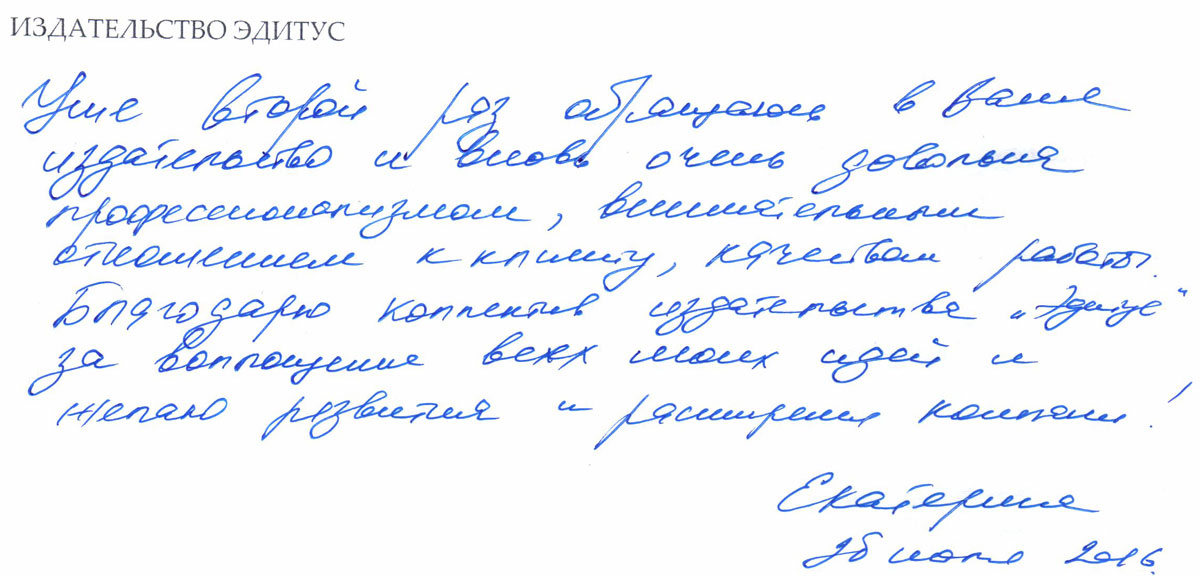 ИЗДАТЕЛЬСТВО ЭДИТУС
Уже второй раз обращаюсь в Ваше
издательство и вновь очень довольна
профессионализмом, внимательным
отношением к клиенту, качеством работы.
Благодарю коллектив издательства „Эдитус"
за воплощение всех моих идей и
желаю развития и расширения компании!
Екатерина
26 июля 2016.